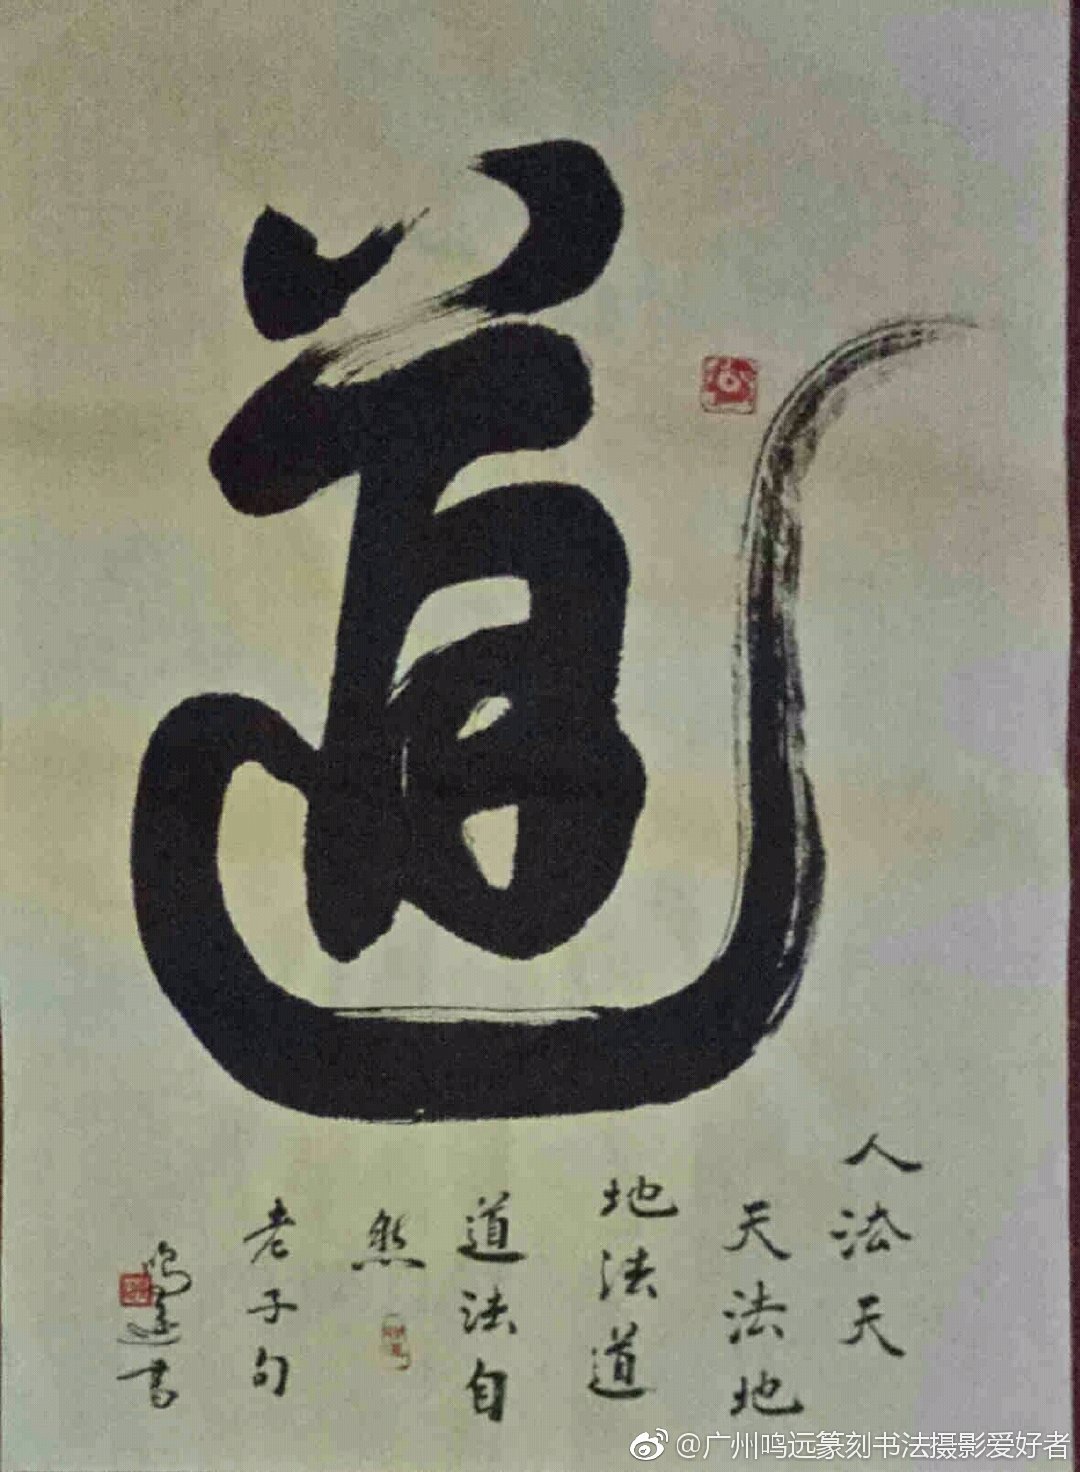 道
人法天
天法地
地法道
道法自
然
老子句
鸣远书
@广州鸣远篆刻书法摄影爱好者